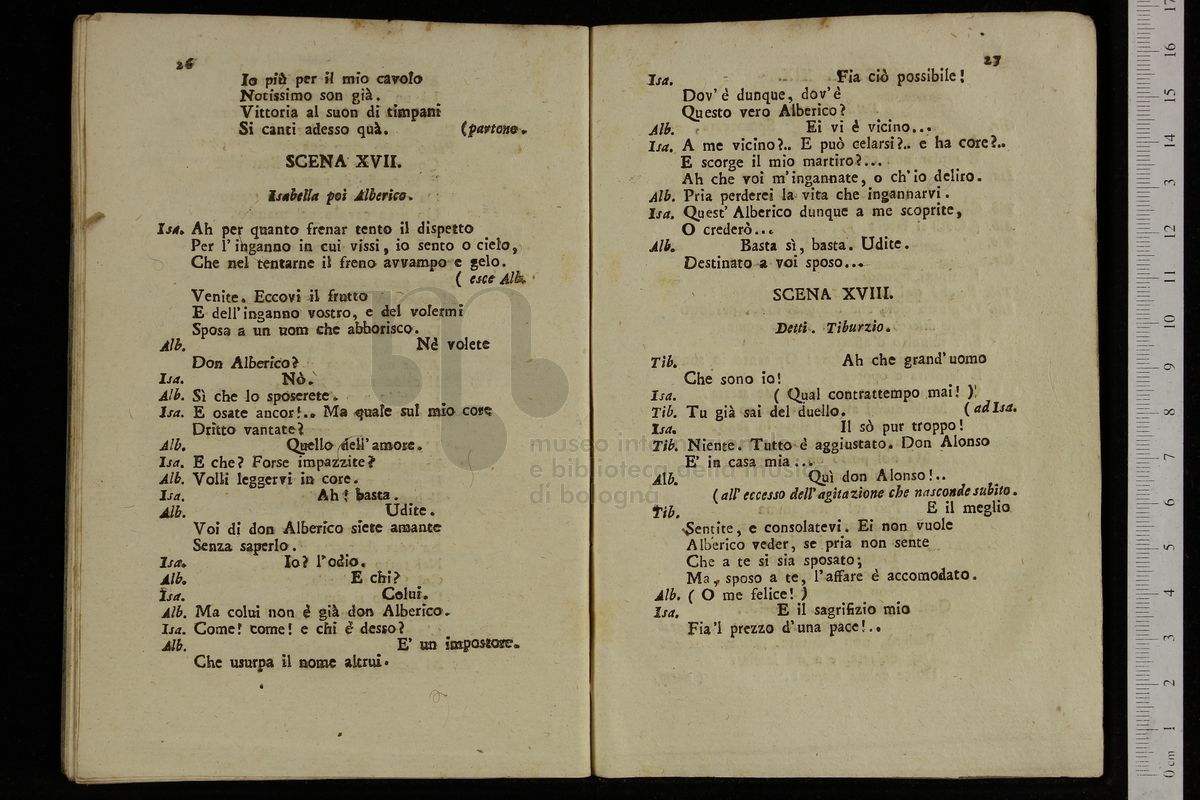 26
Io più per il mio cavolo
Notissimo son già.
Vittoria al suon di timpani
Si canti adesso quà. (partono.
SCENA XVII.
Isabella poi Alberico.
Isa. Ah per quanto frenar tento il dispetto
Per l'inganno in cui vissi, io sento o cielo,
Che nel tentarne il freno avvampo e gelo.
( esce Alb.
Venite. Eccovi il frutto
E dell'inganno vostro, e del volermi
Sposa a un uom che abborisco.
Alb. Nè volete
Don Alberico?
Isa. Nò.
Alb. Sì che lo sposerete.
Isa. E osate ancor!.. Ma quale sul mio core
Dritto vantate?
Alb. Quello dell'amore.
Isa. E che? Forse impazzite?
Alb. Volli leggervi in core.
Isa. Ah! basta.
Alb. Udite.
Voi di don Alberico siete amante
Senza saperlo.
Isa. Io? l'odio.
Alb. E chi?
Isa. Colui.
Alb. Ma colui non è già don Alberico.
Isa. Come! come! e chi è desso?
Alb. E' un impostore.
Che usurpa il nome altrui.
27
Isa. Fia ciò possibile!
Dov'è dunque, dov'è
Questo vero Alberico?
Alb. Ei vi è vicino...
Isa. A me vicino?.. E può celarsi?.. e ha core?..
E scorge il mio martiro?...
Ah che voi m'ingannate, o ch'io deliro.
Alb. Pria perderei la vita che ingannarvi.
Isa. Quest'Alberico dunque a me scoprite,
O crederò...
Alb. Basta sì, basta. Udite.
Destinato a voi sposo...
SCENA XVIII.
Detti. Tiburzio.
Tib. Ah che grand'uomo
Che sono io!
Isa. ( Qual contrattempo mai! )
Tib. Tu già sai del duello. (ad Isa.
Isa. Il sò pur troppo!
Tib. Niente. Tutto è aggiustato. Don Alonso
E' in casa mia...
Alb. Quì don Alonso!..
(all'eccesso dell'agitazione che nasconde subito.
Tib. E il meglio
Sentite, e consolatevi. Ei non vuole
Alberico veder, se pria non sente
Che a te si sia sposato;
Ma, sposo a te, l'affare è accomodato.
Alb. ( O me felice! )
Isa. E il sagrifizio mio
Fia'l prezzo d'una pace!..
museo internazionale
e biblioteca della musica
di bologna